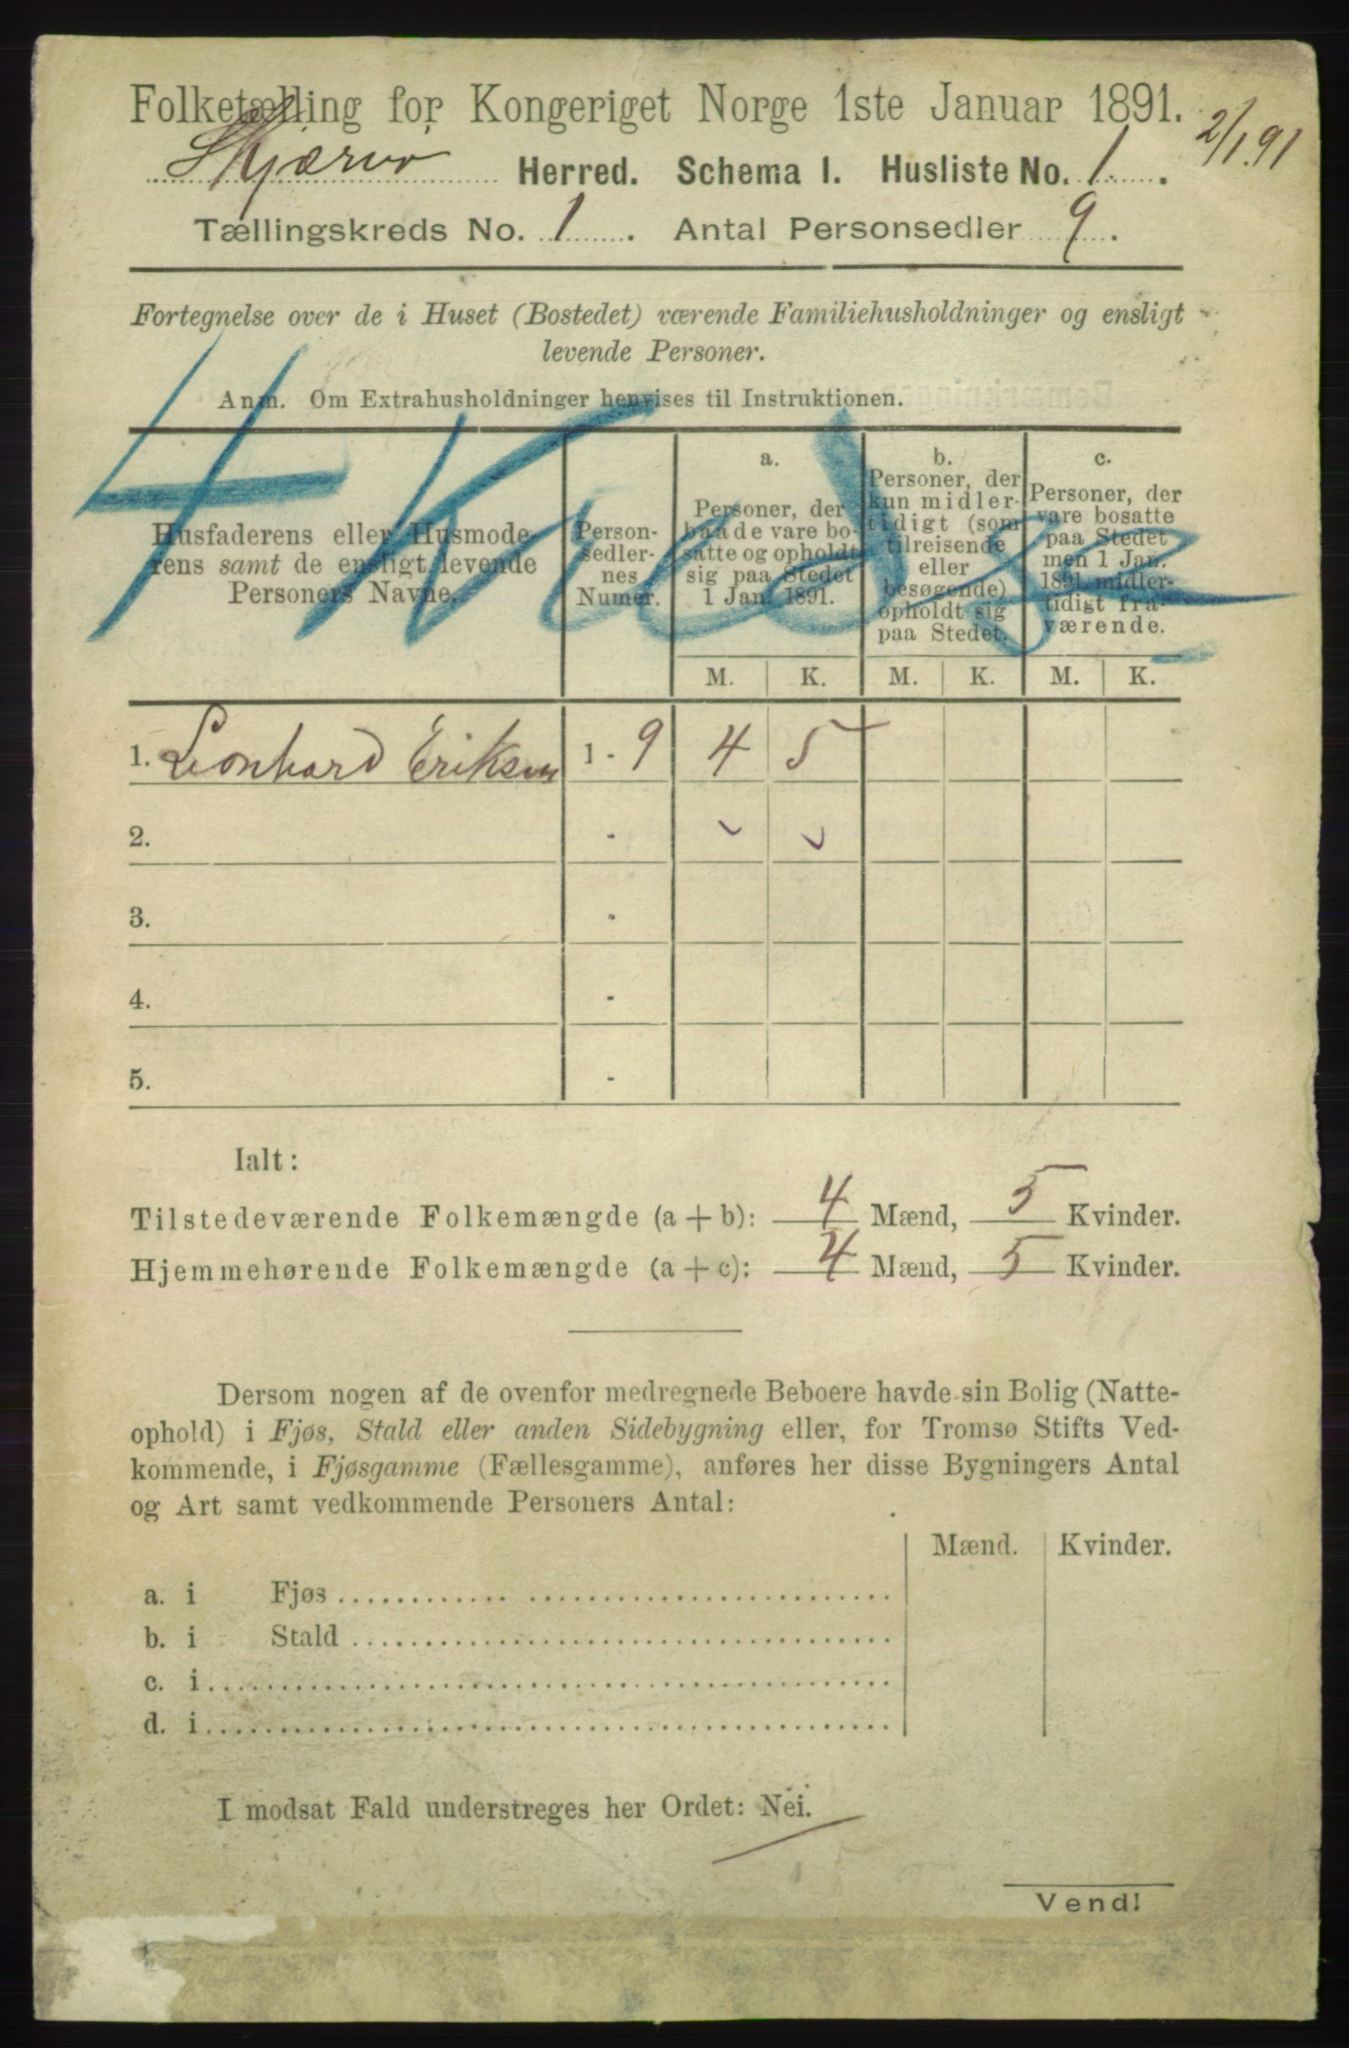 Folketælling for Kongeriget Norge 1ste Januar 1891.
2/1 91
Skjærvø Herred. Schema I. Husliste No. 1.
Tællingskreds No. 1. Antal Personsedler 9.
Fortegnelse over de i Huset (Bostedet) værende Familiehusholdninger og ensligt
levende Personer.
Anm. Om Extrahusholdninger henvises til Instruktionen.
4 Kreds
Husfaderens eller Husmode-
rens samt de ensligt levende
Personers Navne.
Person-
sedler-
nes
Numer.
a.
Personer, der
baade vare bo-
satte og opholdt
sig paa Stedet
1 Jan. 1891.
b.
Personer, der
kun midler-
tidigt (som
tilreisende
eller
besøgende)
opholdt sig
paa Stedet.
c.
Personer, der
vare bosatte
paa Stedet
men 1 Jan.
1891 midler-
tidigt fra-
værende.
M. K. M. K. M. K.
1. Leonhard Eriksen 1 - 9 4 5
2. -
3. -
4. -
5. -
Ialt:
Tilstedeværende Folkemængde (a + b): 4 Mænd, 5 Kvinder.
Hjemmehørende Folkemængde (a + c): 4 Mænd, 5 Kvinder.
Dersom nogen af de ovenfor medregnede Beboere havde sin Bolig (Natte-
ophold) i Fjøs, Stald eller anden Sidebygning eller, for Tromsø Stifts Ved-
kommende, i Fjøsgamme (Fællesgamme), anføres her disse Bygningers Antal
og Art samt vedkommende Personers Antal:
Mænd. Kvinder.
a. i Fjøs
b. i Stald
c. i
d. i
I modsat Fald understreges her Ordet: Nei.
Vend!